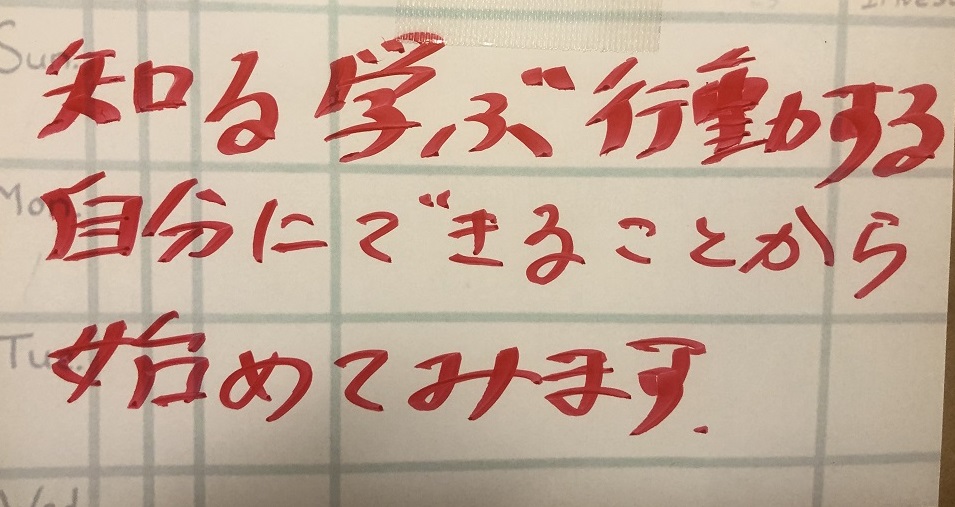 Sun.
知る学ぶ行動する
Mon.
自分にできることから
Tue.
始めてみます.
Wed